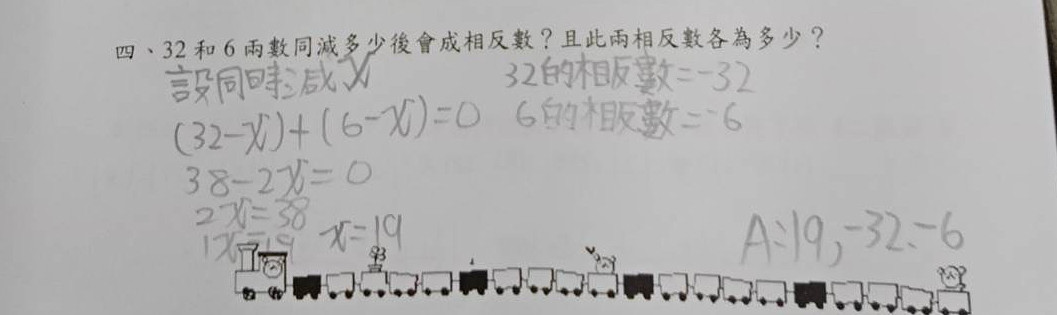 四、32和6兩數同減多少後會成相反數？且此兩相反數各為多少？
設同時減x
32的相反數=-32
(32-x)+(6-x)=0
6的相反數=-6
38-2x=0
2x=38
1x=19
x=19
A:19,-32.-6